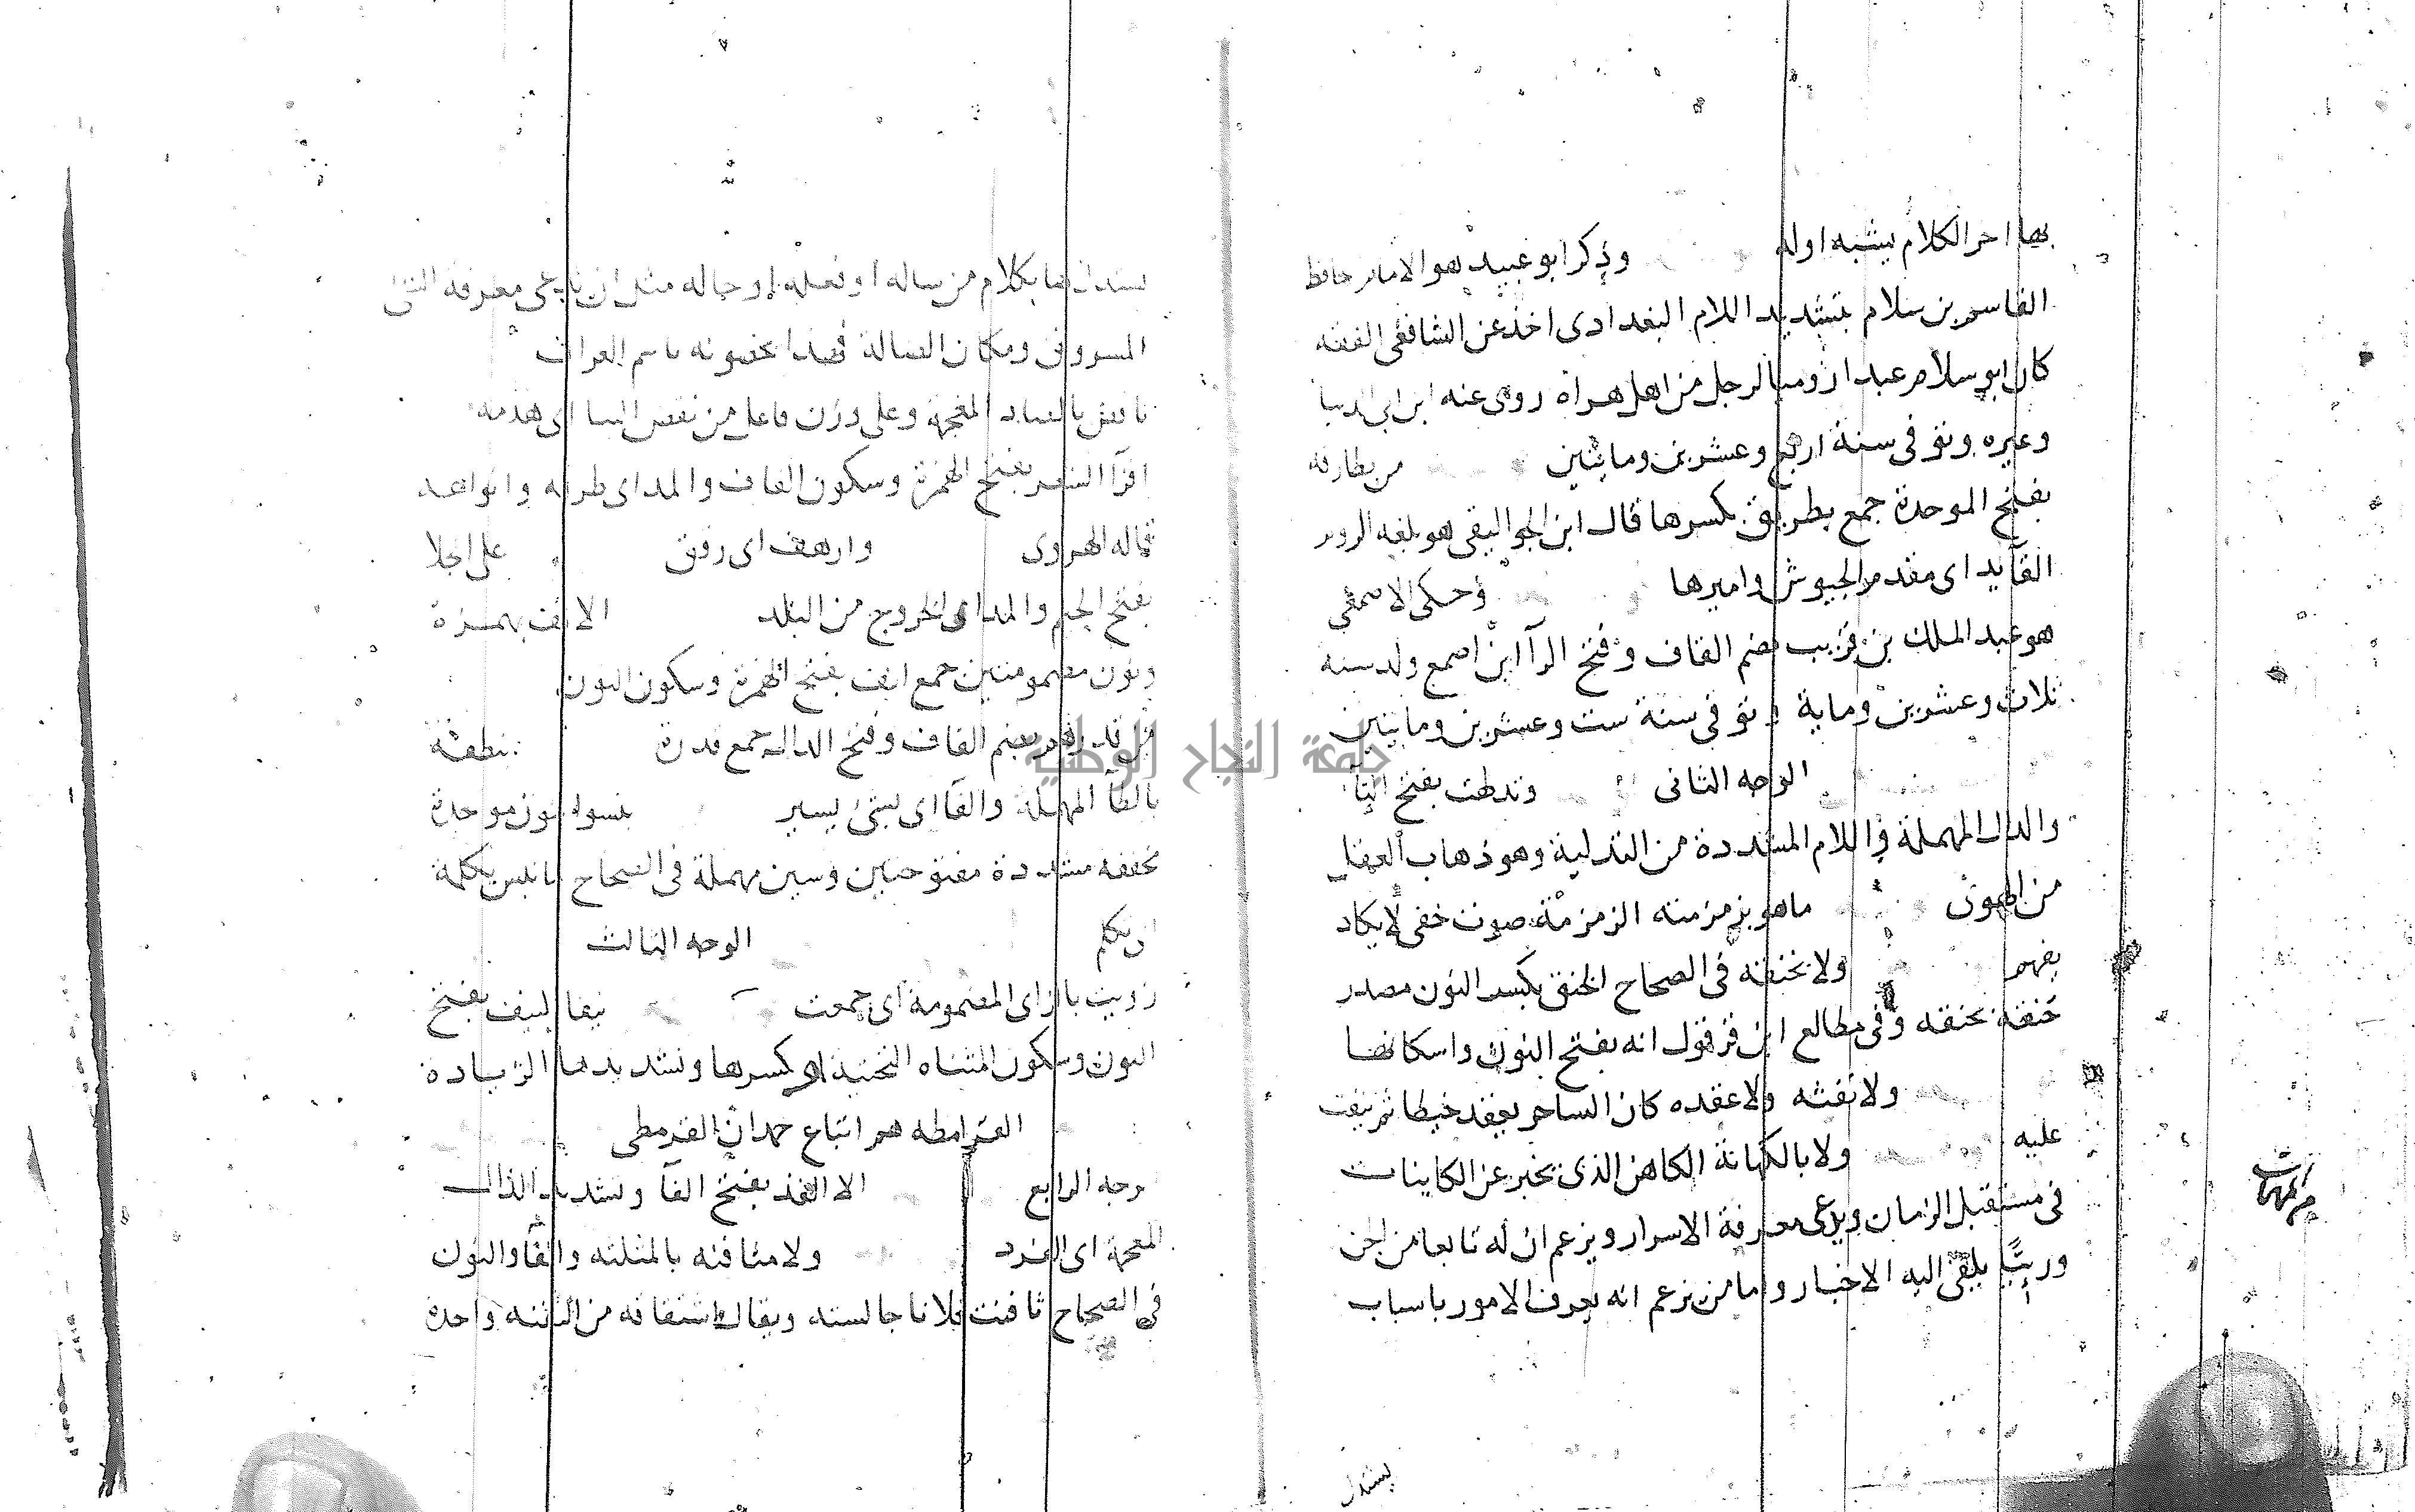 بها اخر الكلام يشبه اوله وذكر ابو عبيد هو الامام حافظ
القاسم بن سلام بتشديد اللام البغدادى اخذ عن الشافعى الفقه
كان ابو سلام عبدا روميا لرجل من اهل هراة روى عنه ابن ابى الدنيا
وغيره وتوفى سنة اربع وعشرين ومايتين من بطارقه
بفتح الموحدة جمع بطريق بكسرها قال ابن الجواليقى هو بلغه الروم
القآيد اى مقدم الجيوش واميرها وحكى الاصمعى
هو عبد الملك بن قريب بضم القاف وفتح الرآ ابن اصمع ولد سنه
ثلاث وعشرين وماية وتوفى سنة ست وعشرين ومايتين
الوجه الثانى وتدلهت بفتح التآ
والدال المهملة واللام المشددة من التدليه وهو ذهاب العقل
من الهوى ما هو بزمزمته الزمزمة صوت خفى لا يكاد
يفهم ولا بخنقه فى الصحاح الخنق بكسر النون مصدر
خنقه يخنقه وفى مطالع ابن قرقول انه بفتح النون واسكانها
ولا نفثه ولا عقده كان الساحر يعقد خيطا ثم ينفث
عليه ولا بالكهانة الكاهن الذى يخبر عن الكاينات
فى مستقبل الزمان ويدعى معرفة الاسرار ويزعم ان له تابعا من الجن
ورئيًا يلقى اليه الاخبار واما من يزعم انه يعرف الامور باسباب
يستدل
يستدل بها بكلام من ساله او فعله او حاله مثل ان يدعى معرفه الشئ
المسروق ومكان الضالة فهذا يخصونه باسم العراف
ناقض بالضاد المعجمة وعلى وزن فاعل من نقض البنا اى هدمه
اقرآ الشعر بفتح الهمزة وسكون القاف والمد اى طرقه وانواعه
قاله الهروى وارهف اى رقق على اجلا
بفتح الجيم والمد اى الخروج من البلد الانف بهمزة
ونون مضمومتين جمع انف بفتح الهمزة وسكون النون
من قدرهم بضم القاف وفتح الدال جمع قدرة بنطفة
بالطآ المهملة والفآ اى بشئ يسير ينسوا بنون موحدة
مخففه مشددة مفتوحتين وسين مهملة فى الصحاح ما نبس بكلمة
اى تكلم الوجه الثالث
زويت بالزاى المضمومة اى جمعت نيفا النيف بفتح
النون وسكون المثناه التحتية او كسرها وتشديدها الزيادة
القرامطه هم اتباع حمدان القرمطى
وجه الرابع الا الفذ بفتح الفآ وتشديد الذال
المعجمة اى الفرد ولا مثافنه بالمثلثه والفآ والنون
فى الصحاح ثافنت فلانا جالسته ويقال اشتقاقه من الثفنه واحدة
جامعة النجاح الوطنية